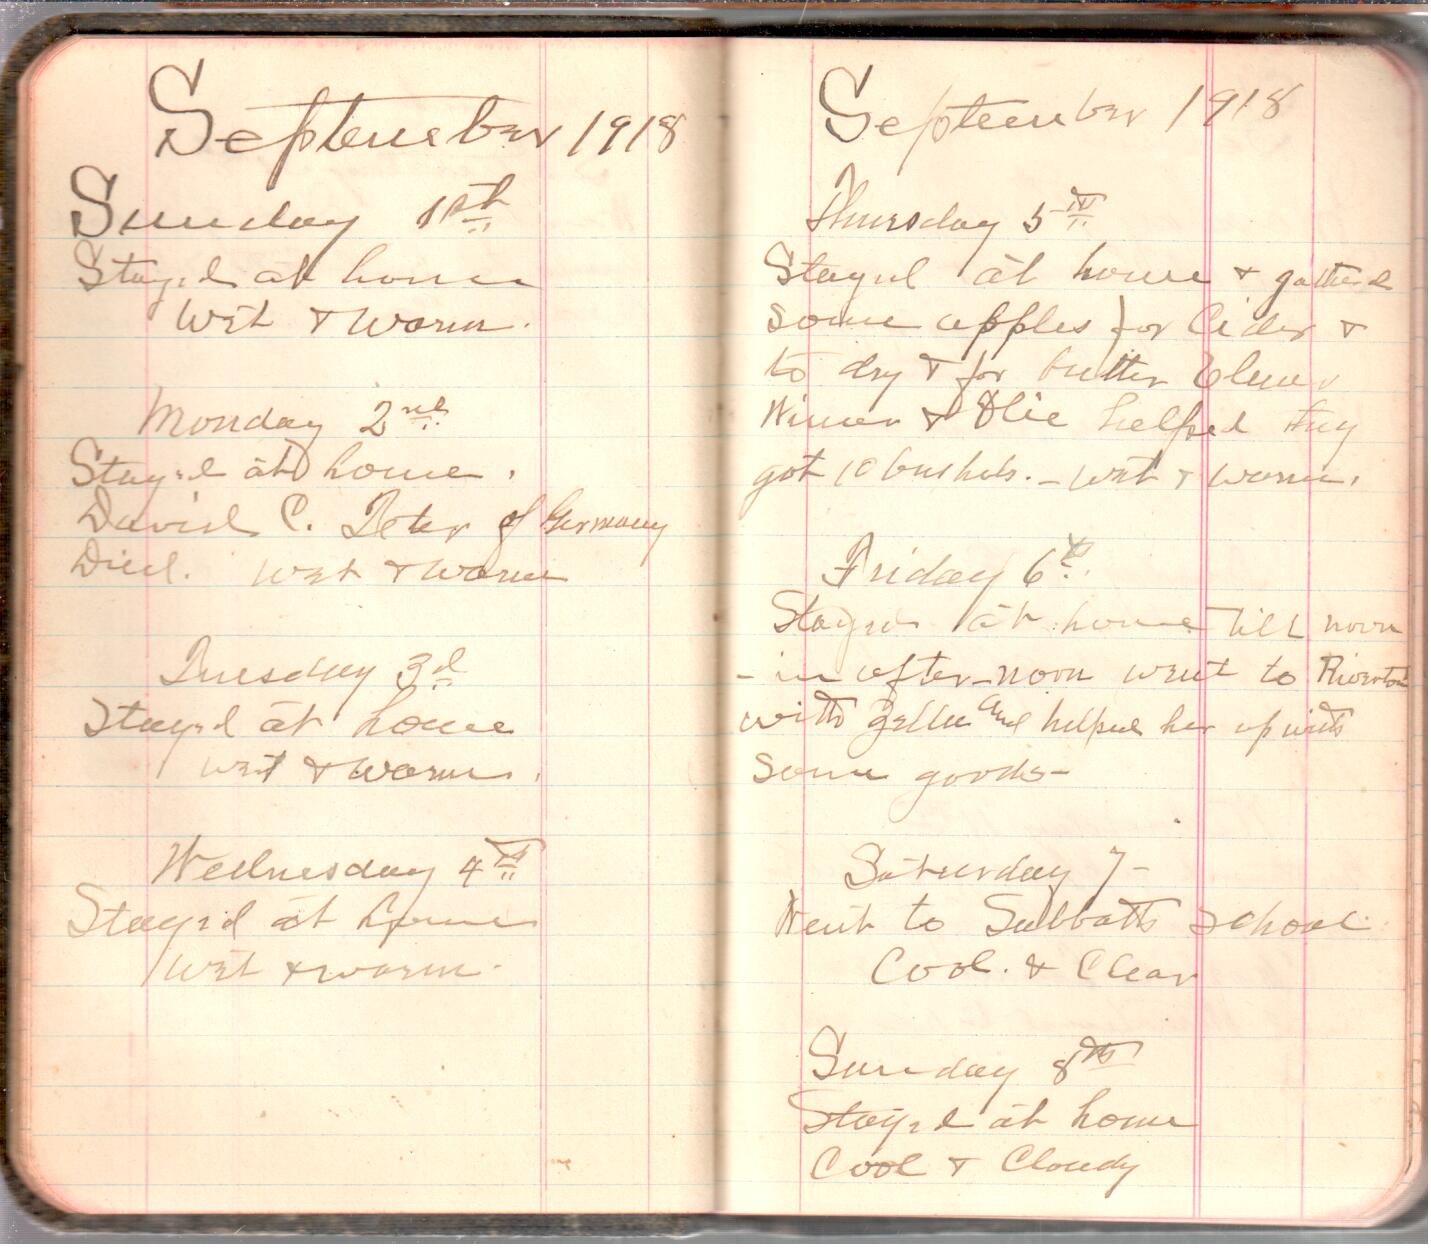 September 1918
Sunday 1st
Stayed at home
Wet & Warm.
Monday 2nd
Stayed at home.
David C. Teter of Germany
Died. Wet & Warm
Tuesday 3d
Stayed at home
Wet & Warm.
Wednesday 4th
Stayed at home
Wet & warm.
September 1918
Thursday 5th
Stayed at home & gathered
some apples for Cider &
to dry & for butter Elmer
& Olie helped they
got 10 bushels. - Wet & Warm.
Friday 6th
Stayed at home till noon
- in after-noon went to Riverton
with Zella and helped her up with
Some goods-
Saturday 7-
Went to Sabbath School
Cool. & Clear
Sunday 8th
Stayed at home
Cool & Cloudy